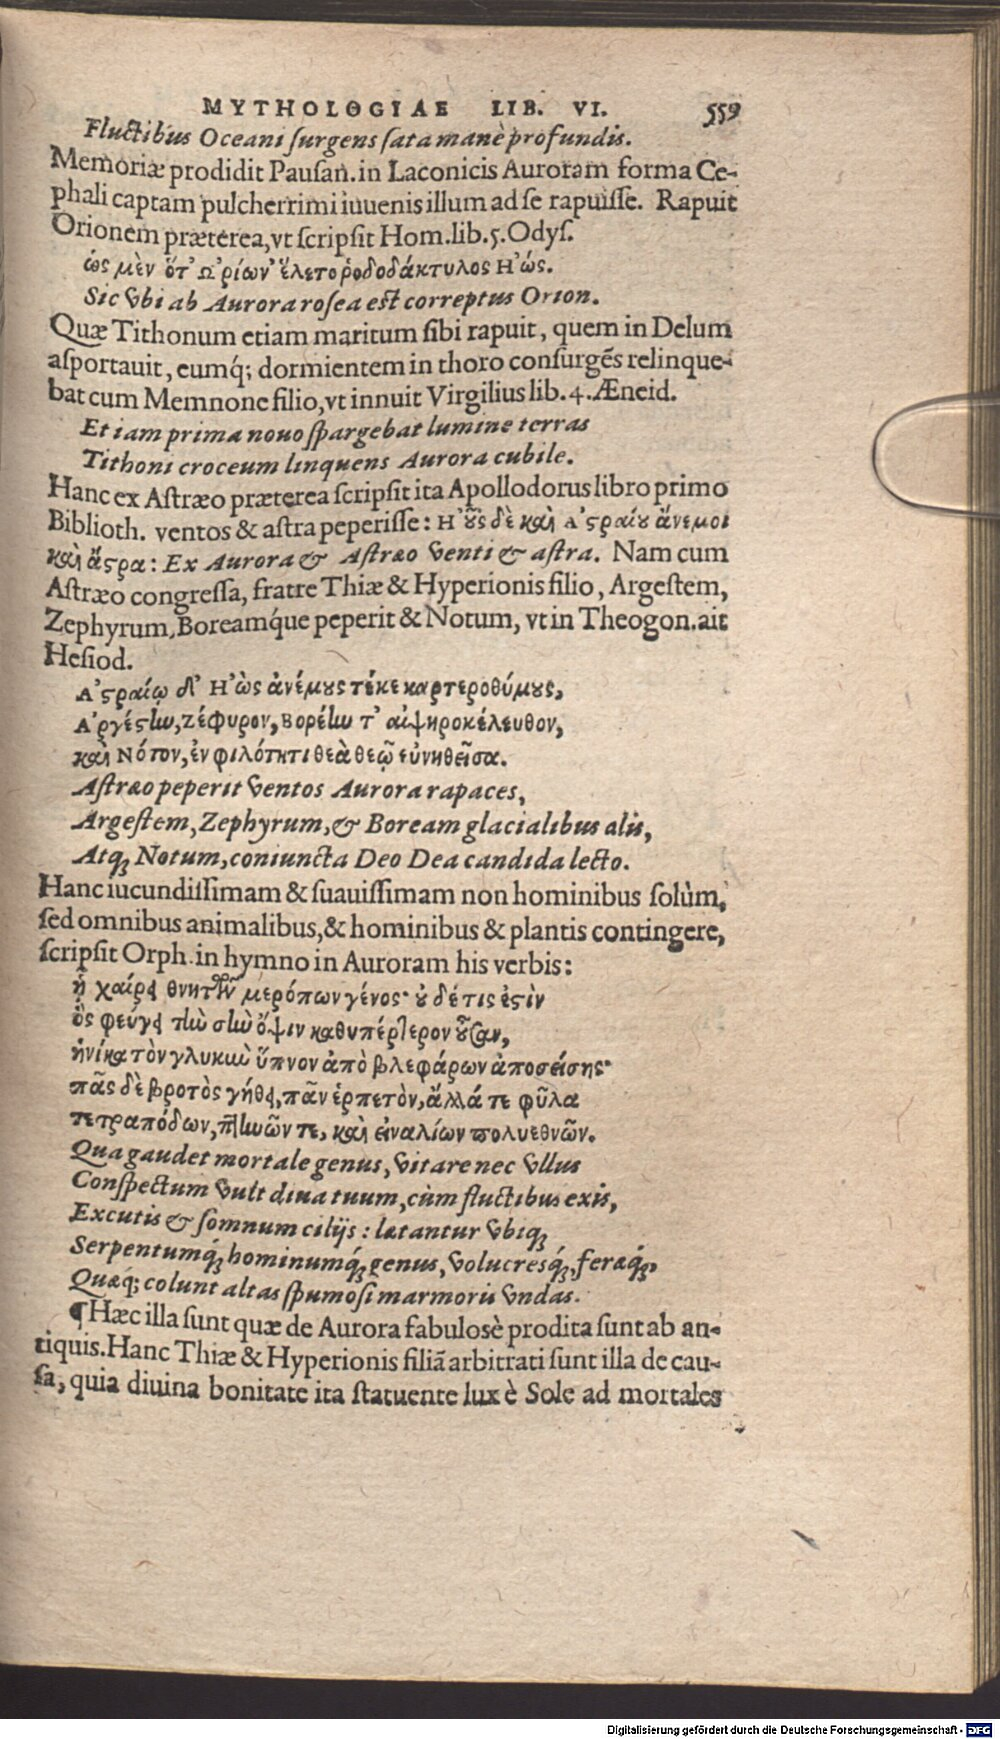 MYTHOLOGIAE LIB. VI. 559
Fluctibus Oceani ſurgens ſata manè profundis.
Memoriæ prodidit Pauſan. in Laconicis Auroram forma Ce-
phali captam pulcherrimi iuuenis illum ad ſe rapuiſſe. Rapuit
Orionem præterea, vt ſcripſit Hom. lib. 5. Odyſ.
ὡς μὲν ὅτ' Ω'ρίων' ἕλετο ῥοδοδάκτυλος Η'ώς.
Sic vbi ab Aurora roſea eſt correptus Orion.
Quæ Tithonum etiam maritum ſibi rapuit, quem in Delum
aſportauit, eumq́; dormientem in thoro conſurgẽs relinque-
bat cum Memnone filio, vt innuit Virgilius lib. 4. Æneid.
Et iam prima nouo ſpargebat lumine terras
Tithoni croceum linquens Aurora cubile.
Hanc ex Aſtræo præterea ſcripſit ita Apollodorus libro primo
Biblioth. ventos & aſtra peperiſſe: Η'οῦς δὲ καὶ Α'ϛραίου ἄνεμοι
καὶ ἄϛρα: Ex Aurora & Aſtræo venti & aſtra. Nam cum
Aſtræo congreſſa, fratre Thiæ & Hyperionis filio, Argeſtem,
Zephyrum, Boreamq́ue peperit & Notum, vt in Theogon. ait
Heſiod.
Α'ϛραίῳ δ' Η'ὼς ἀνέμους τέκε καρτεροθύμους,
Α'ργέϛην, Ζέφυρον, Βορέην τ' αἰψηροκέλευθον,
καὶ Νότον, ἐν φιλότητι θεὰ θεῷ εὐνηθεῖσα.
Aſtræo peperit ventos Aurora rapaces,
Argeſtem, Zephyrum, & Boream glacialibus alis,
Atq; Notum, coniuncta Deo Dea candida lecto.
Hanc iucundiſſimam & ſuauiſſimam non hominibus ſolùm,
ſed omnibus animalibus, & hominibus & plantis contingere,
ſcripſit Orph. in hymno in Auroram his verbis:
ᾗ χαίρει θνητῶν μερόπων γένος· οὐδέ τις ἐϛὶν
ὃς φεύγει τὴν σὴν ὄψιν καθυπέρτερον οὖσαν,
ἡνίκα τὸν γλυκὺν ὕπνον ἀπὸ βλεφάρων ἀποσείσης·
πᾶς δὲ βροτὸς γήθει, πᾶν ἑρπετὸν, ἄλλά τε φῦλα
τετραπόδων, πτηνῶν τε, καὶ εἰναλίων πολυεθνῶν.
Qua gaudet mortale genus, vitare nec vllus
Conſpectum vult diua tuum, cùm fluctibus exis,
Excutis & ſomnum cilijs: lætantur vbiq;
Serpentumq́; hominumq́; genus, volucresq́;, feræq́;,
Quæq́; colunt altas ſpumoſi marmoris vndas.
¶Hæc illa ſunt quæ de Aurora fabuloſè prodita ſunt ab an-
tiquis. Hanc Thiæ & Hyperionis filiã arbitrati ſunt illa de cau-
ſa, quia diuina bonitate ita ſtatuente lux è Sole ad mortales
Digitalisierung gefördert durch die Deutsche Forschungsgemeinschaft - DFG